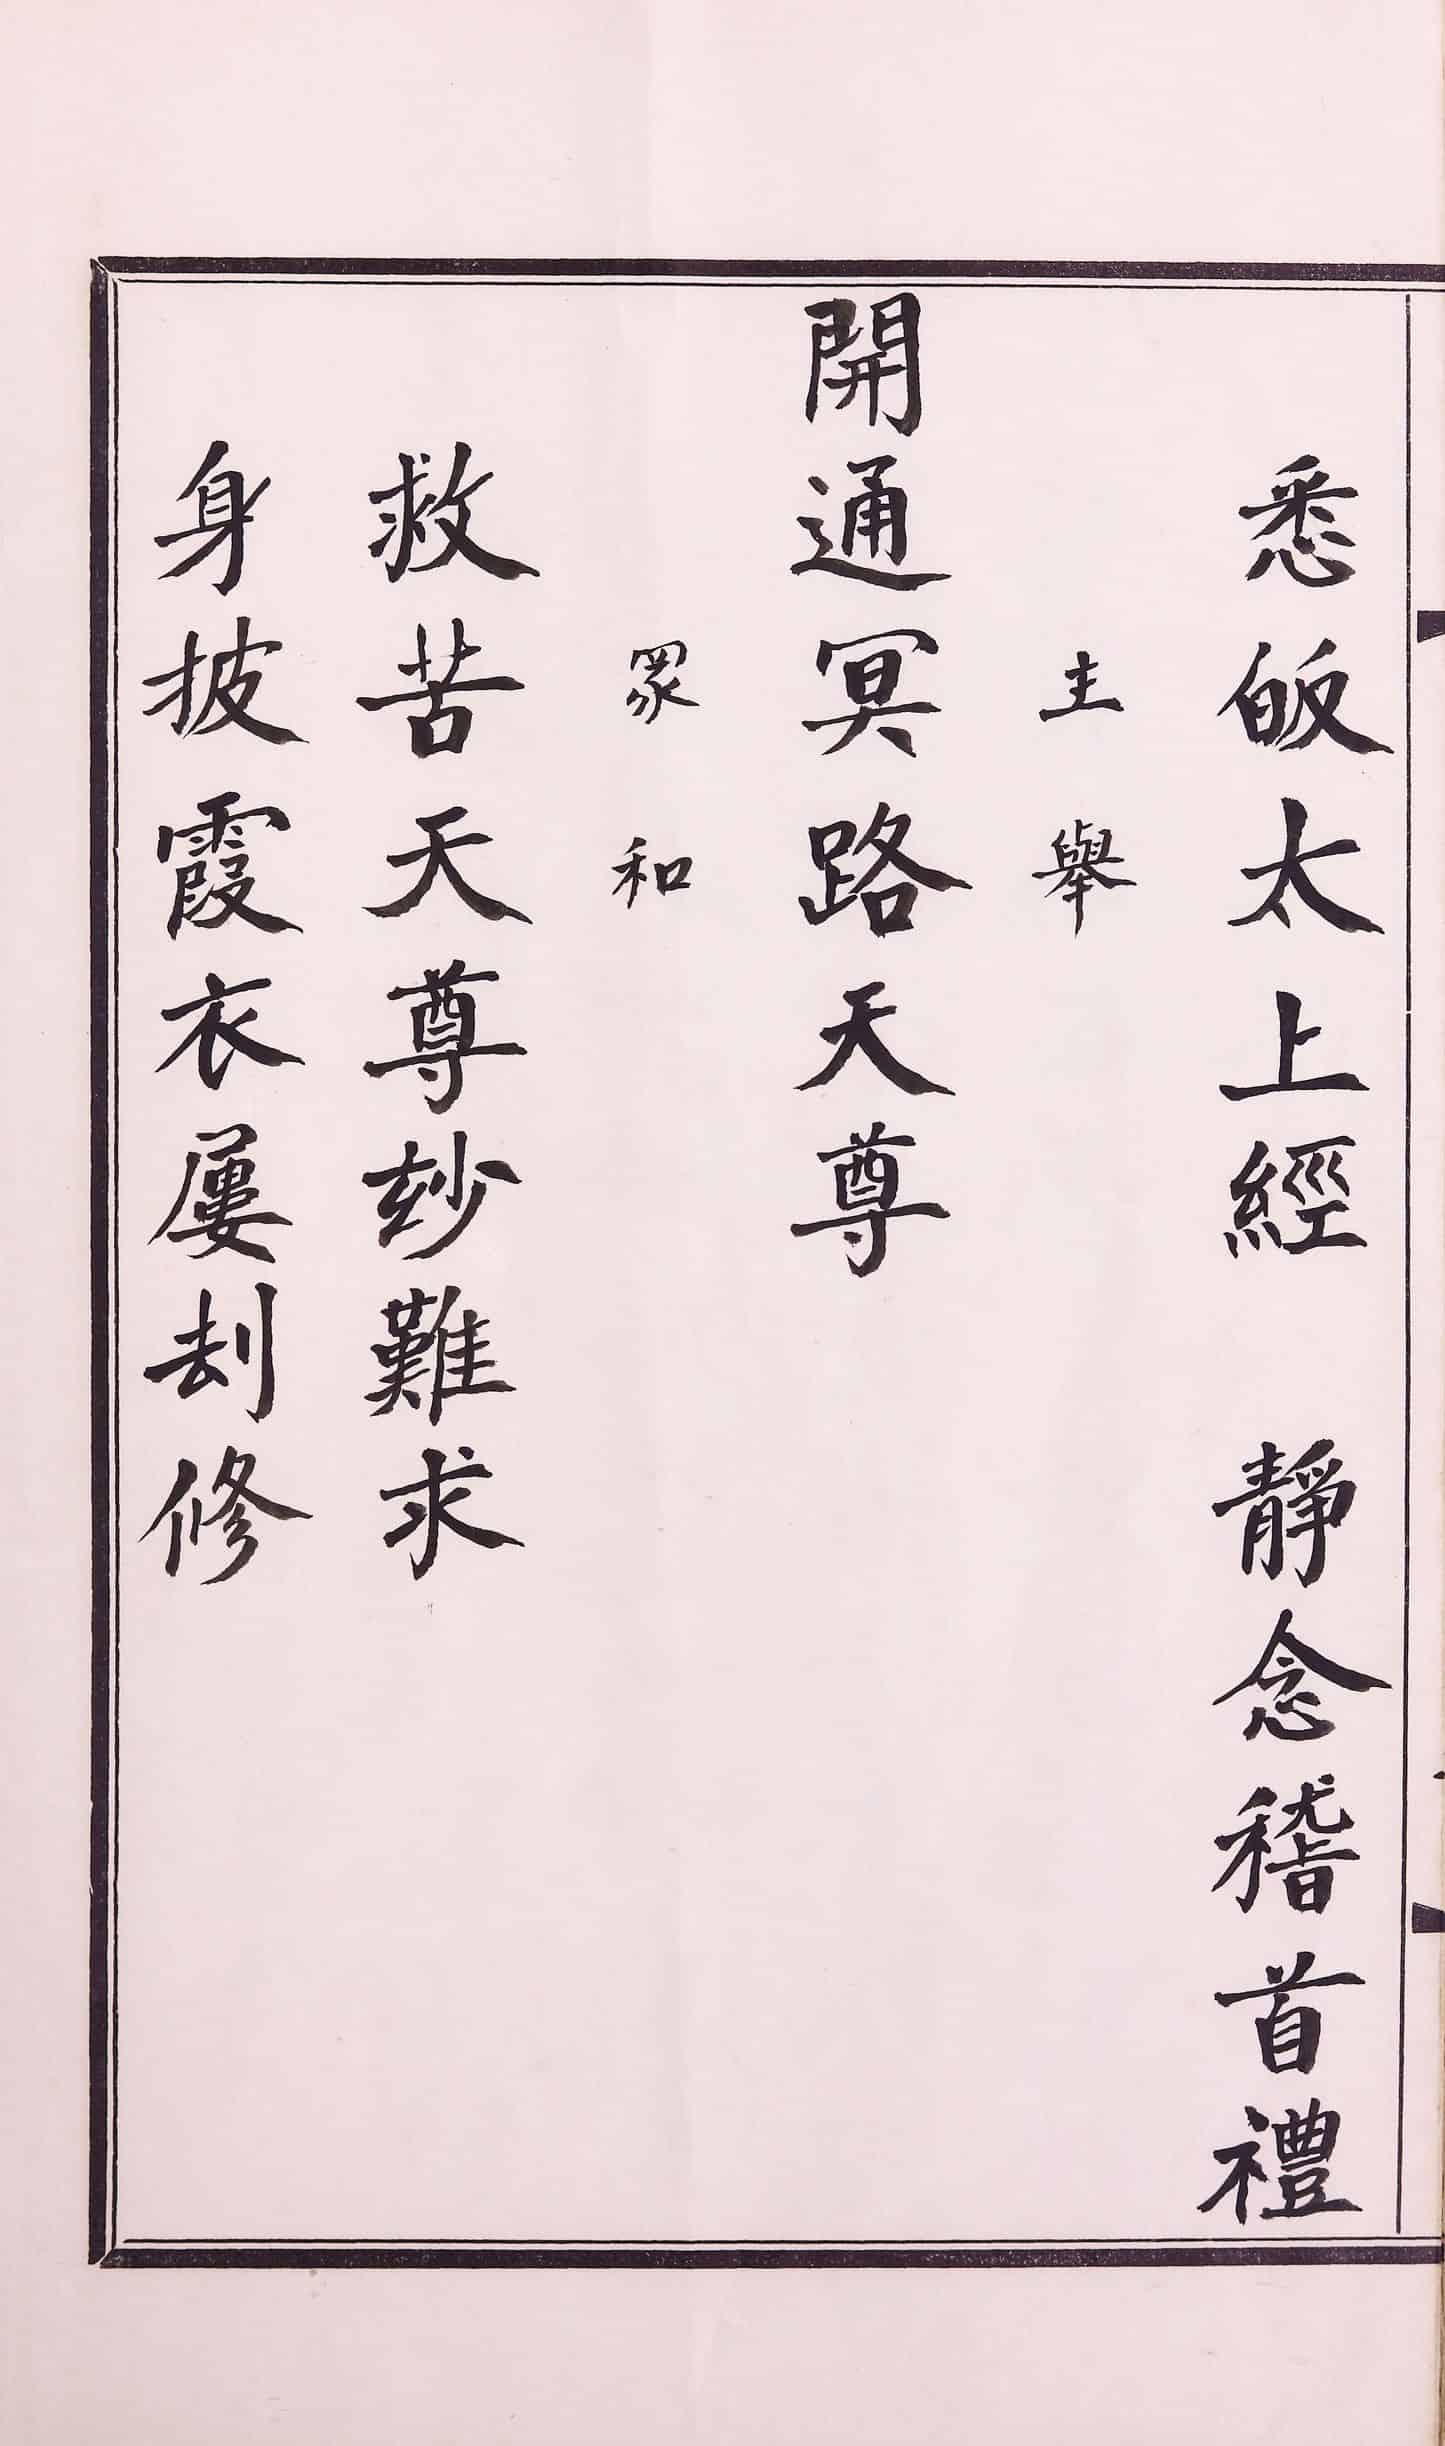 悉皈太上經　靜念稽首禮
主舉
開通冥路天尊
眾和
救苦天尊玅難求
身披霞衣屢刦修